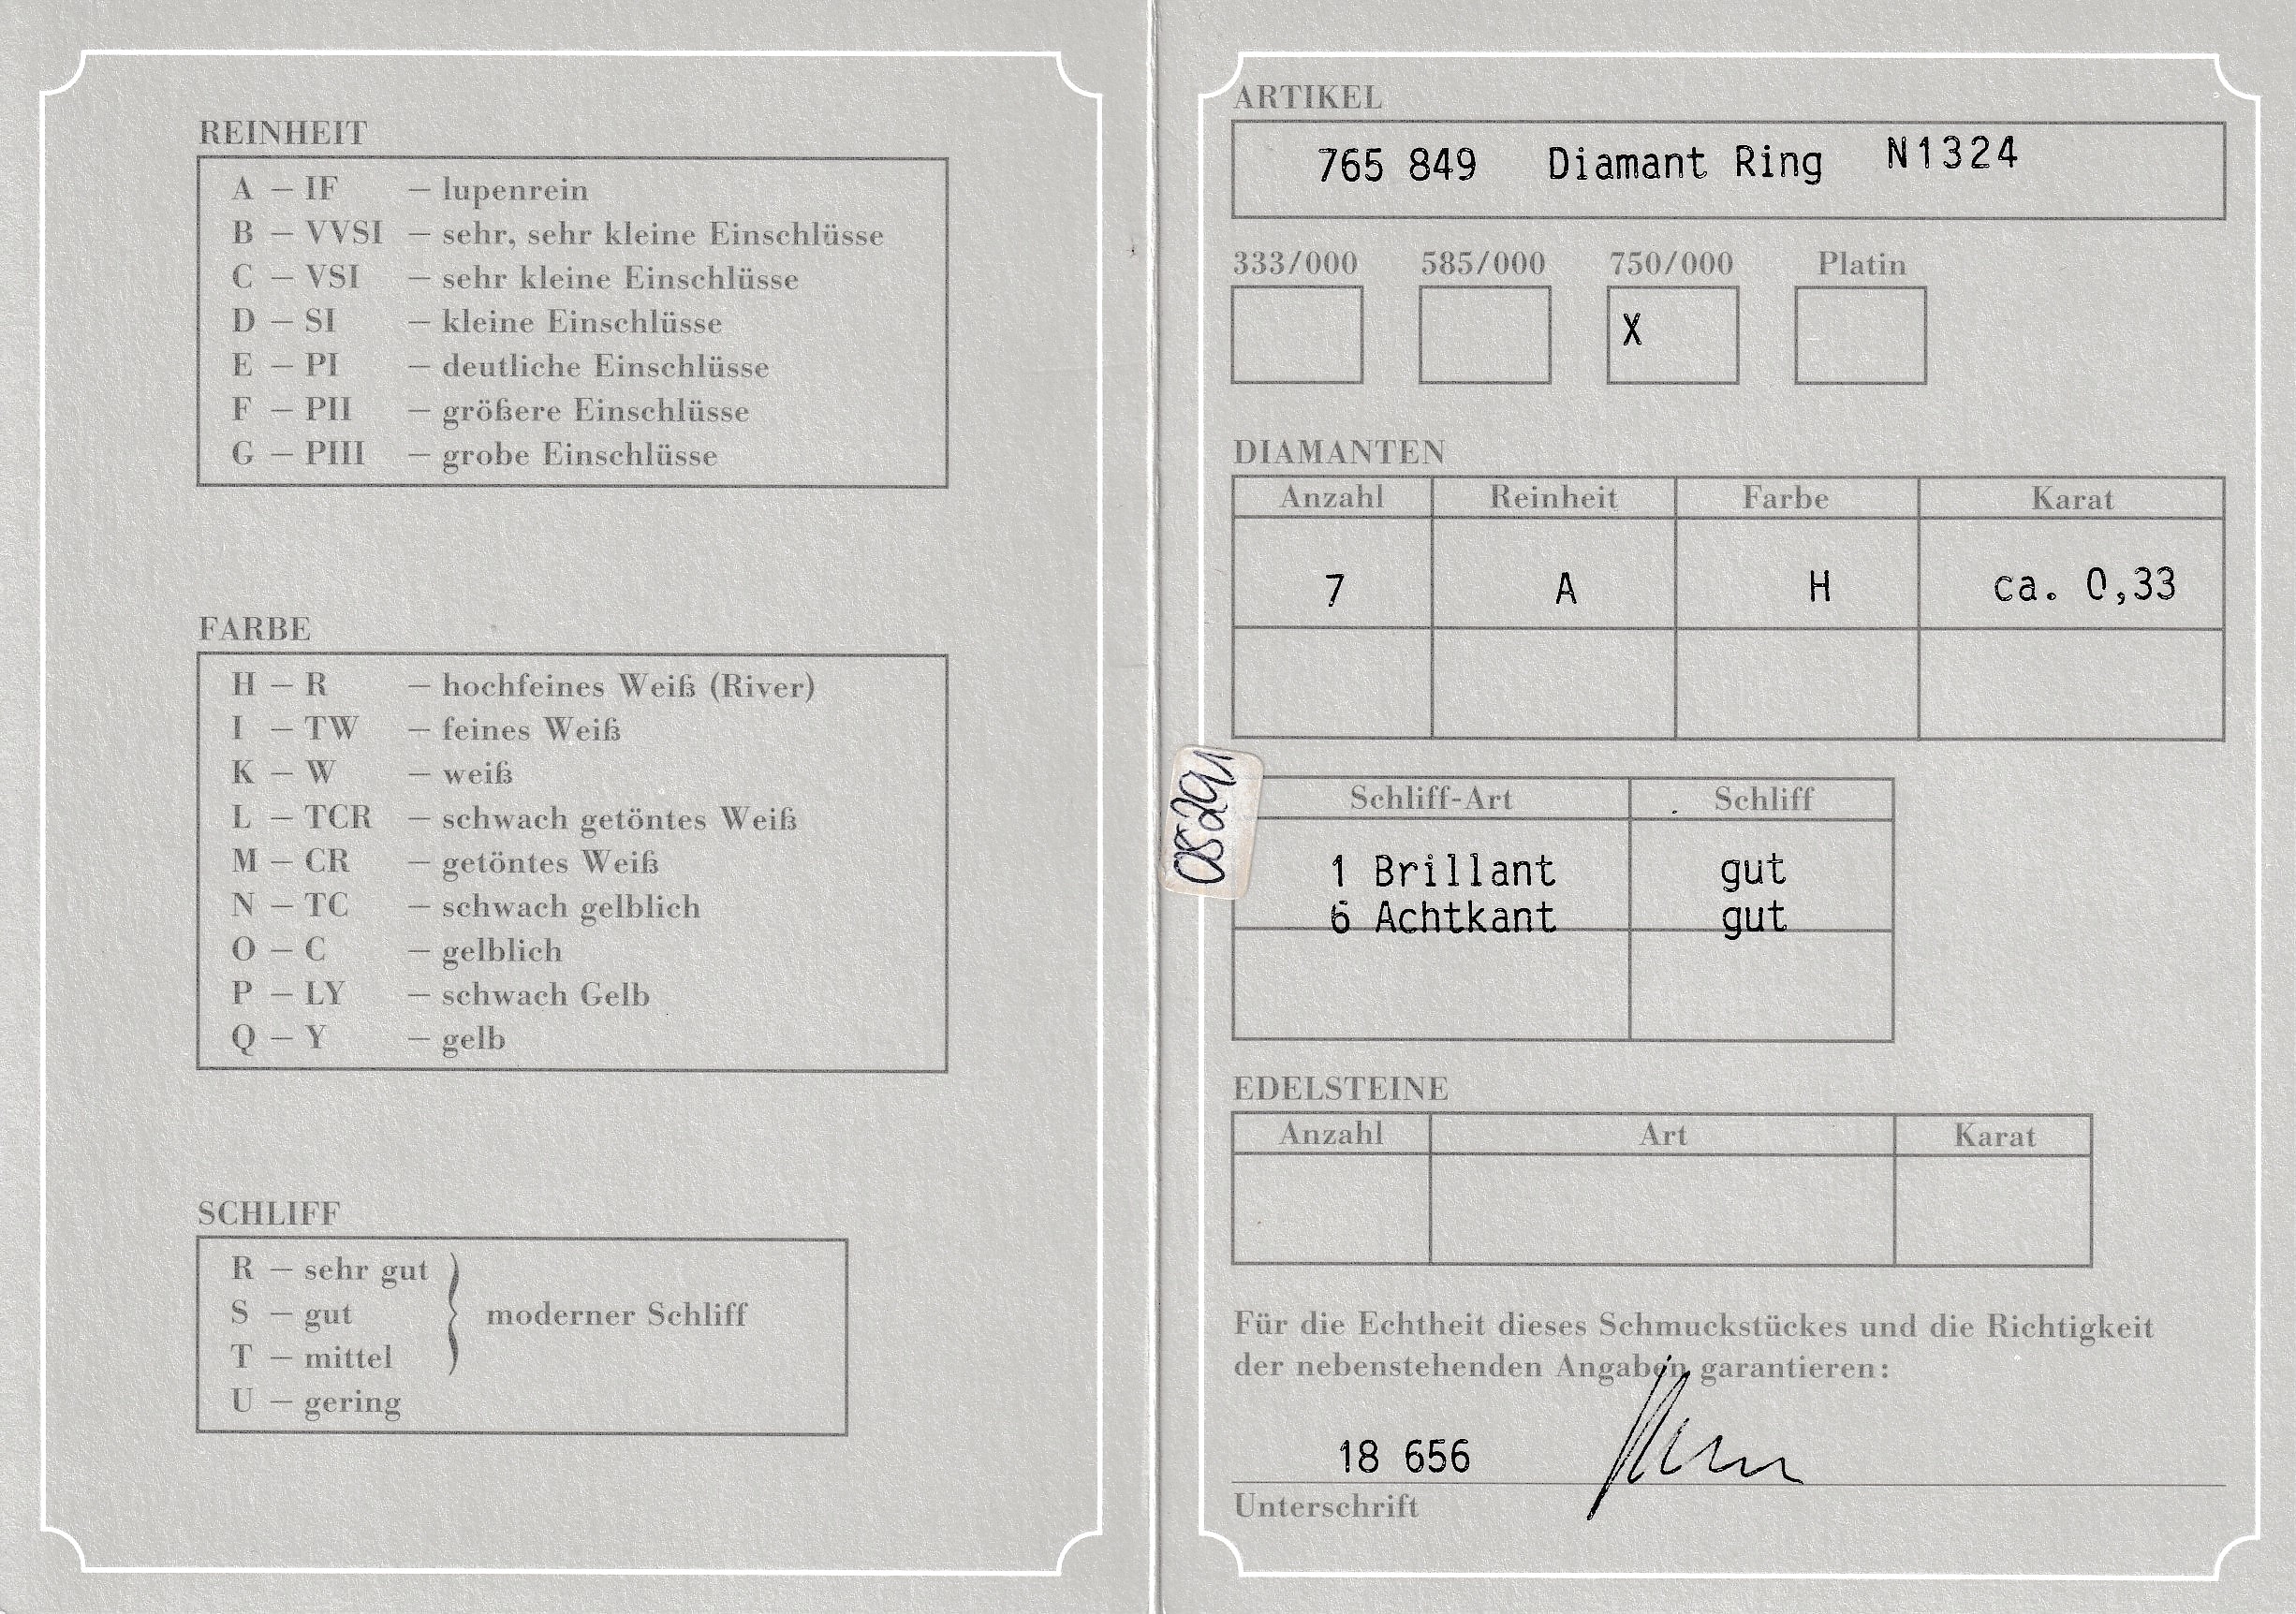 REINHEIT
A – IF – lupenrein
B – VVSI – sehr, sehr kleine Einschlüsse
C – VSI – sehr kleine Einschlüsse
D – SI – kleine Einschlüsse
E – PI – deutliche Einschlüsse
F – PII – größere Einschlüsse
G – PIII – grobe Einschlüsse
FARBE
H – R – hochfeines Weiß (River)
I – TW – feines Weiß
K – W – weiß
L – TCR – schwach getöntes Weiß
M – CR – getöntes Weiß
N – TC – schwach gelblich
O – C – gelblich
P – LY – schwach Gelb
Q – Y – gelb
SCHLIFF
R – sehr gut
S – gut
moderner Schliff
T – mittel
U – gering
ARTIKEL
765 849 Diamant Ring N1324
333/000 585/000 750/000 Platin
X
DIAMANTEN
Anzahl Reinheit Farbe Karat
7 A H ca. 0,33
Schliff-Art Schliff
1 Brillant gut
6 Achtkant gut
EDELSTEINE
Anzahl Art Karat
Für die Echtheit dieses Schmuckstückes und die Richtigkeit
der nebenstehenden Angaben garantieren:
18 656
Unterschrift